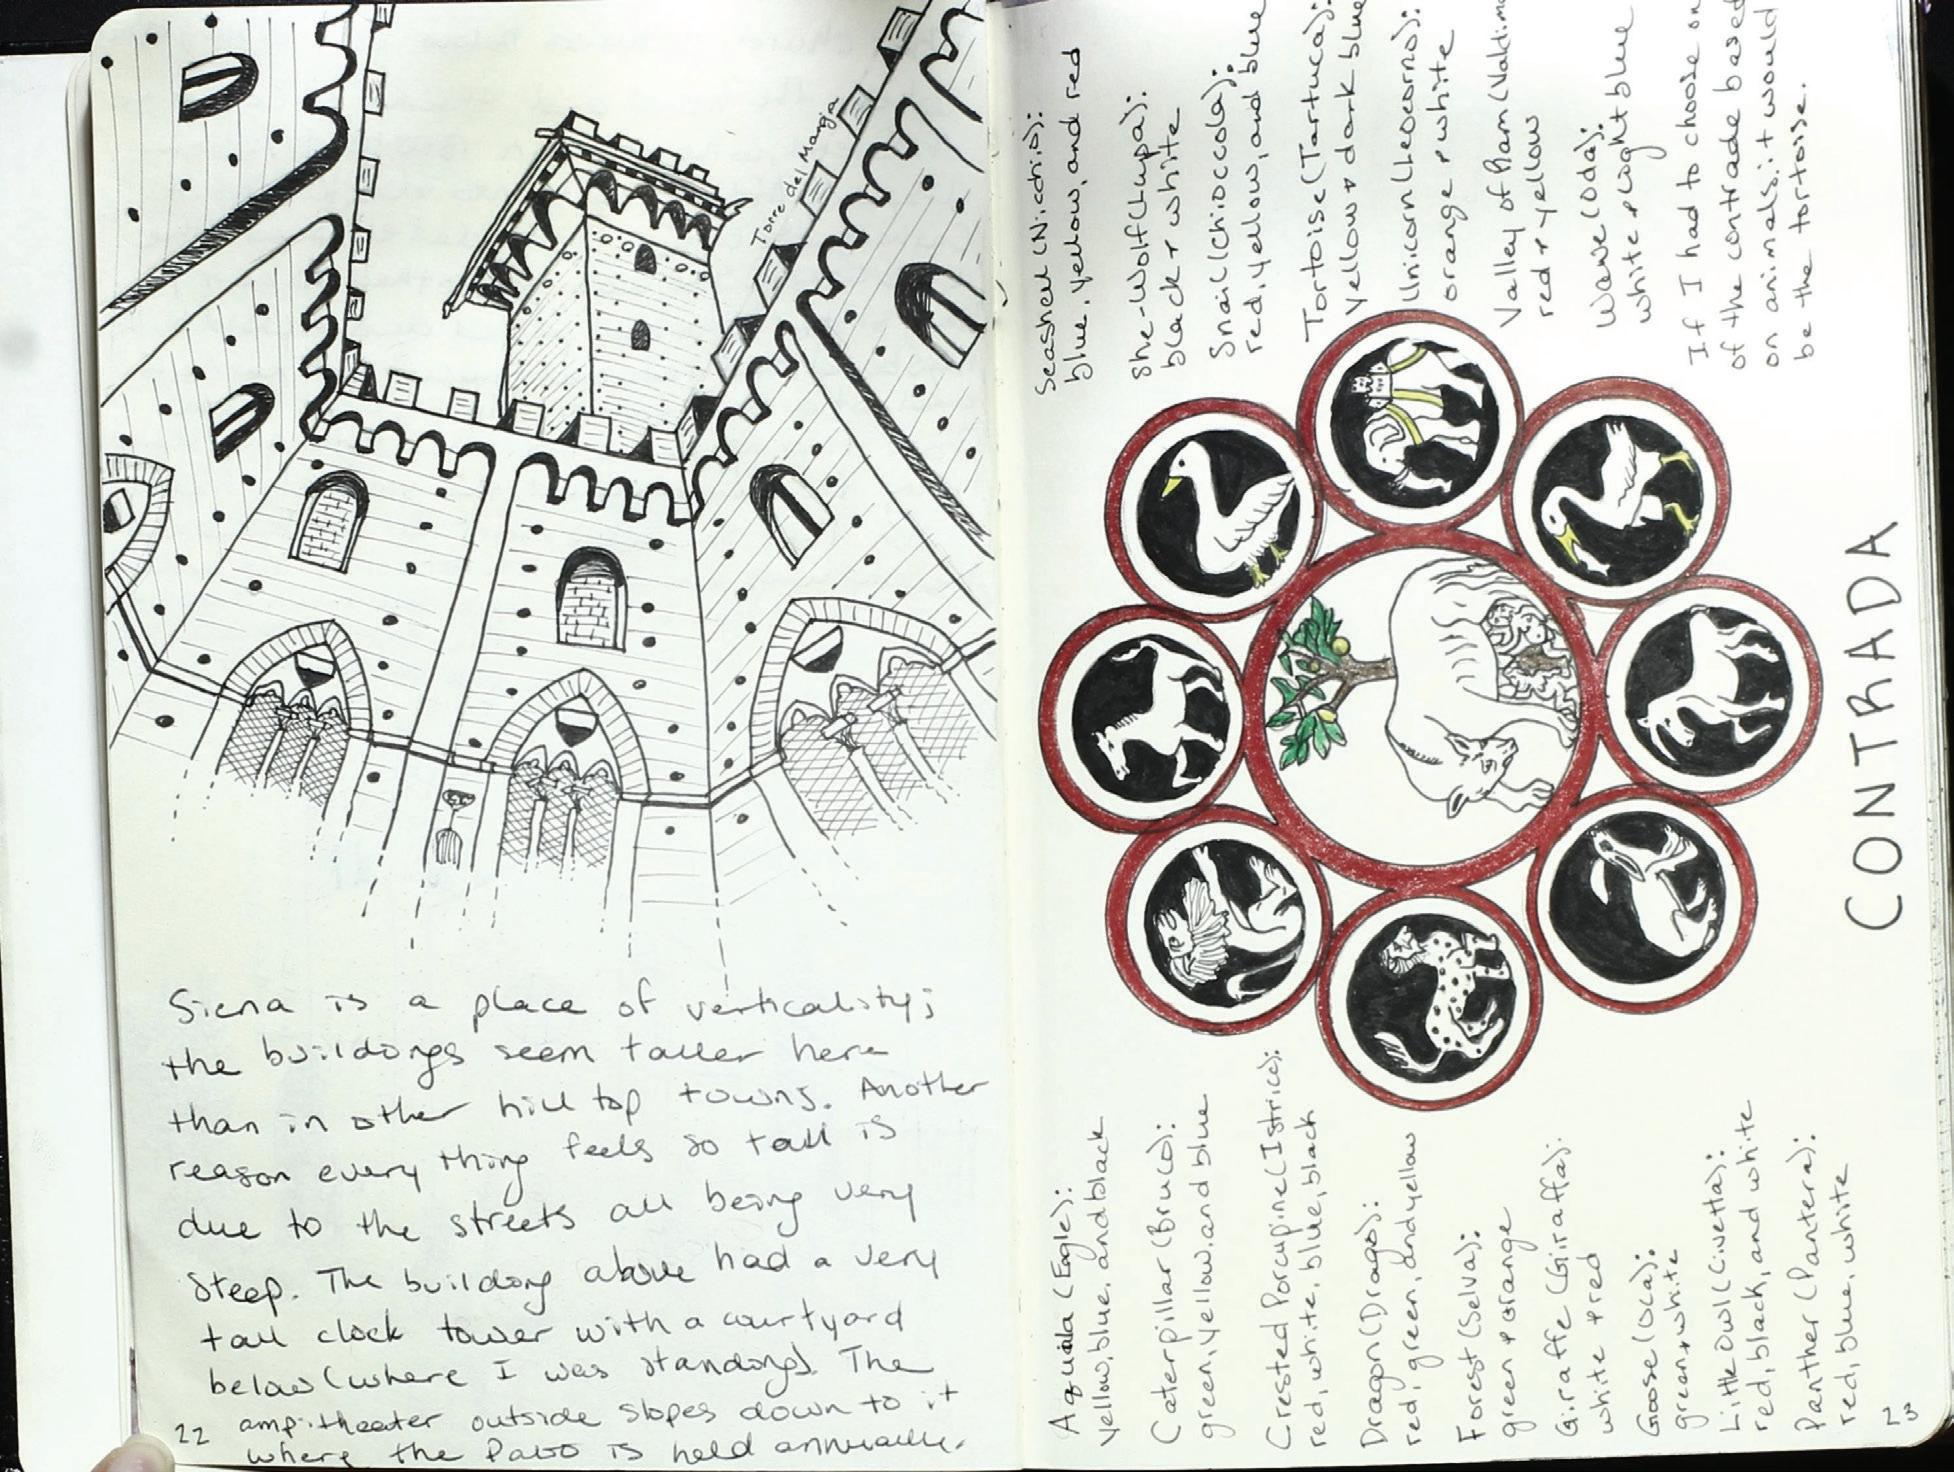 Torre del Mangia
Siena is a place of verticality;
the buildings seem taller here
than in other hill top towns. Another
reason everything feels so tall is
due to the streets all being very
steep. The building above had a very
tall clock tower with a courtyard
below (where I was standing). The
ampitheater outside slopes down to it
where the Palio is held annually.
22
CONTRADA
Aquila (Eagle):
yellow, blue, and black
Caterpillar (Bruco):
green, yellow, and blue
Crested Porcupine (Istrice):
red, white, blue, black
Dragon (Drago):
red, green, and yellow
Forest (Selva):
green + orange
Giraffe (Giraffa):
white + red
Goose (Oca):
green + white
Little Owl (Civetta):
red, black, and white
Panther (Pantera):
red, blue, white
Seashell (Nicchio):
blue, yellow, and red
She-Wolf (Lupa):
black + white
Snail (Chioccola):
red, yellow, and blue
Tortoise (Tartuca):
yellow + dark blue
Unicorn (Leocorno):
orange + white
Valley of Ram (Valdim
red + yellow
Wave (Oda):
white + light blue
If I had to choose on
of the contrade based
on animals: it would
be the tortoise.
23